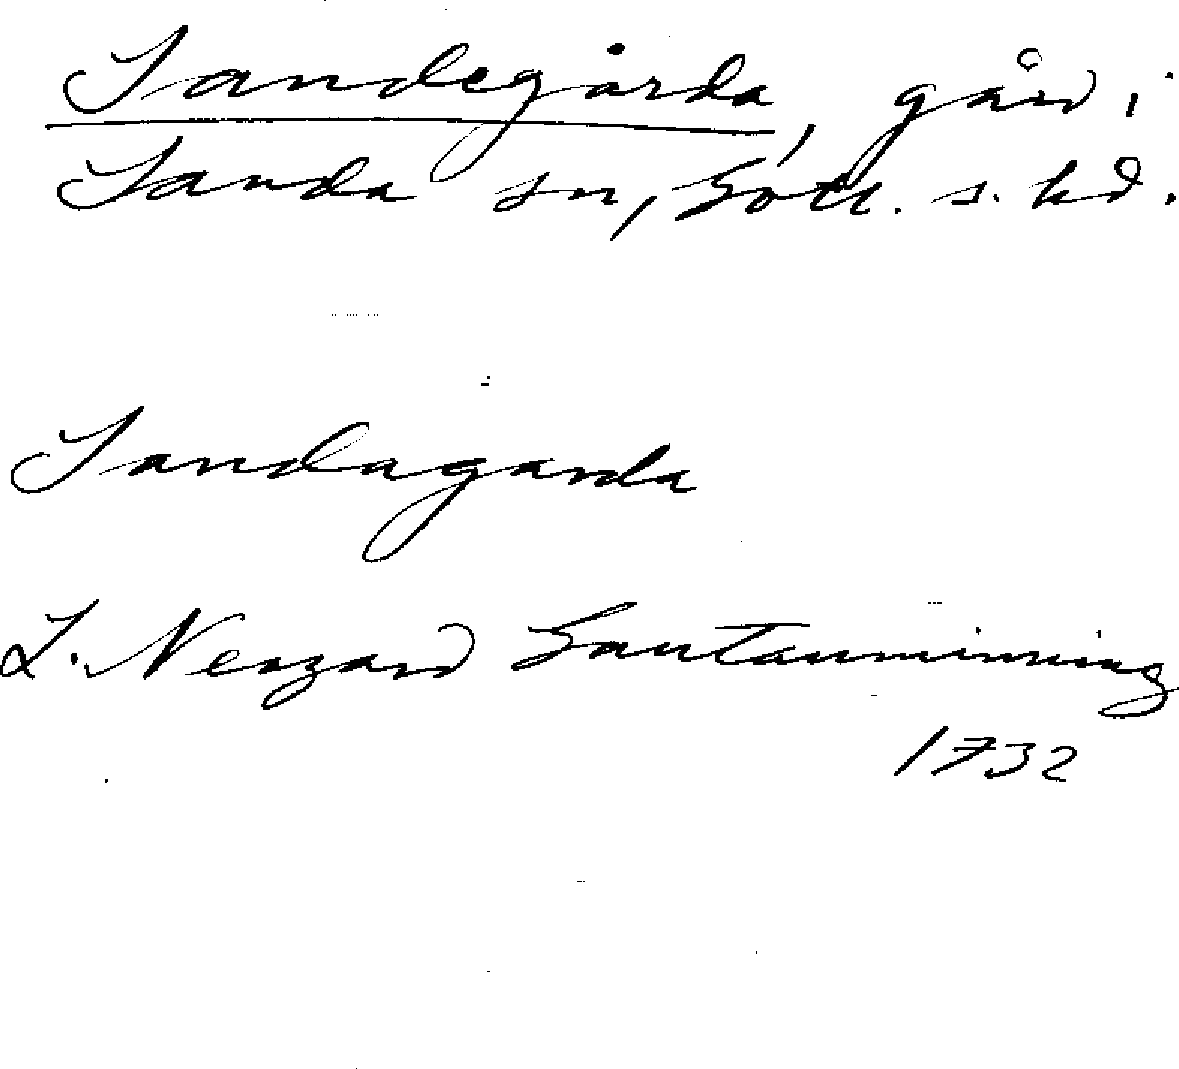 Sandegårda, gård i
Sanda sn, Gotl. s. hd.
Sandagarda
L. Neogard Gautauminning
1732